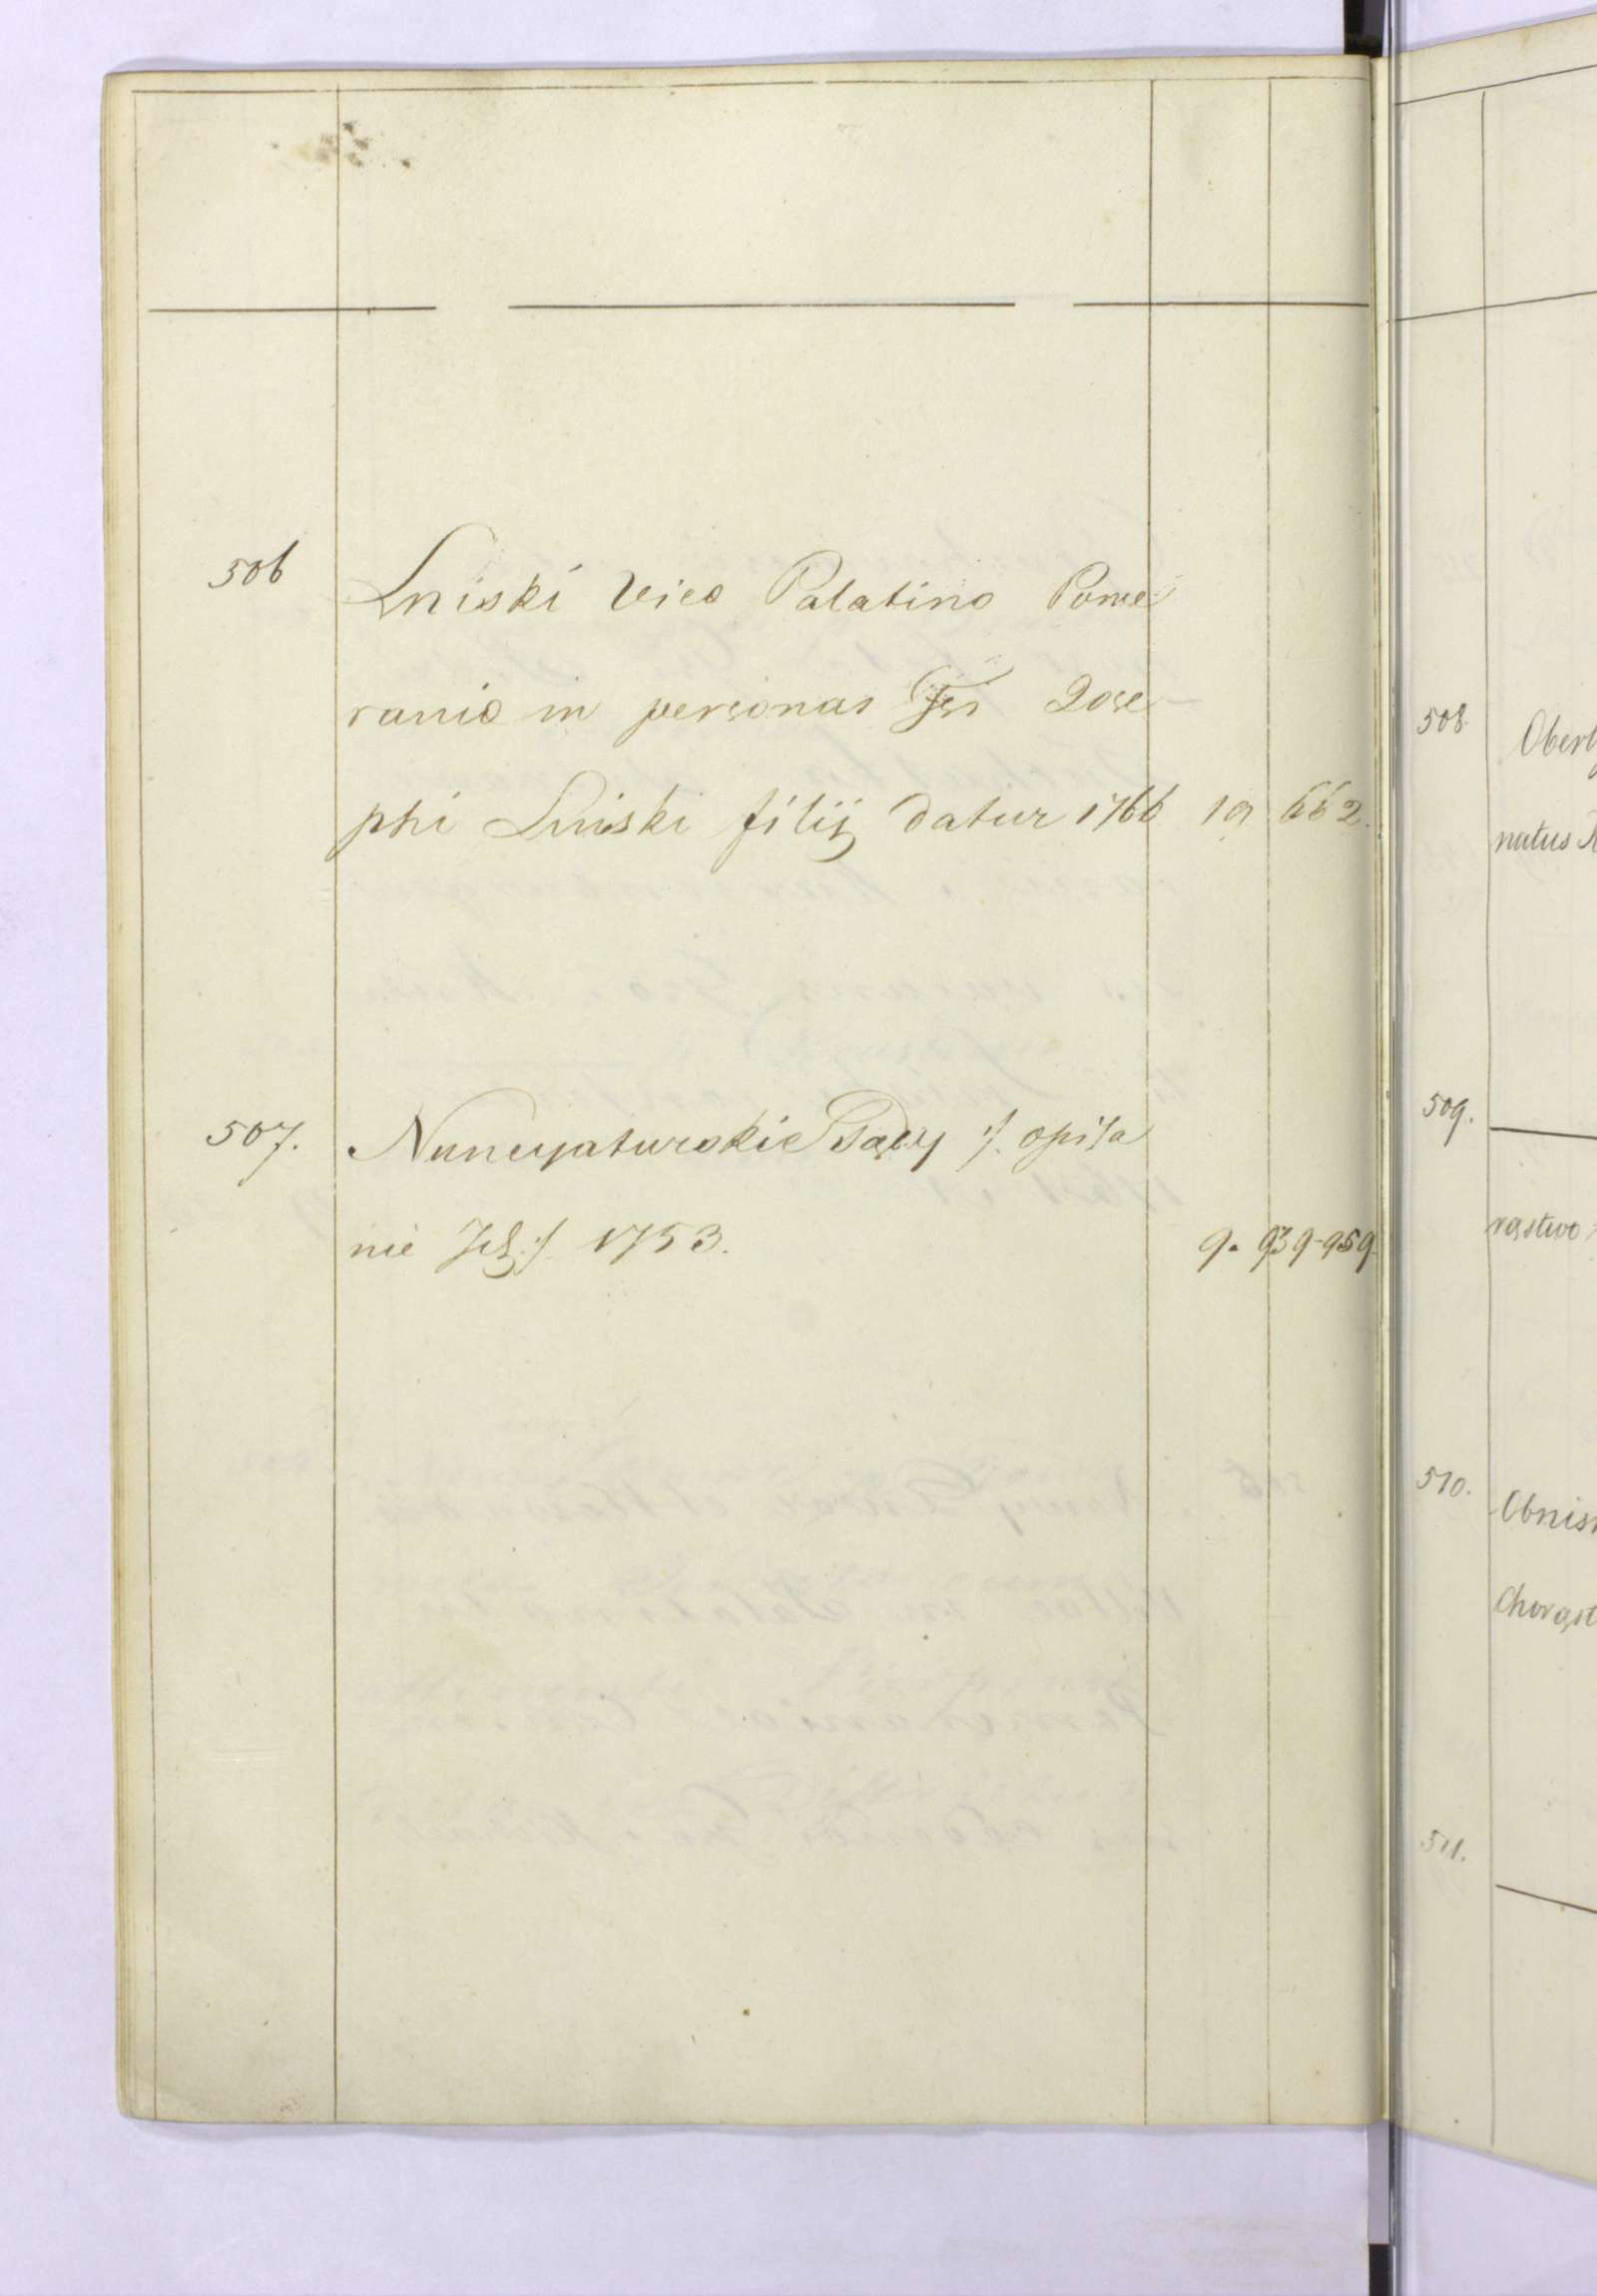 506 Lniski Vice Palatino Pome
ranie in personas Gsi Jose-
phi Lniski filij datur 1766 19 662.
507. Nuncyaturskie Sądy /. opisa
nie Ich :/ 1753. 9. 939-959
508 Oberb
natus
509.
rąstwo
510. Obnisk
Chorąst
511.